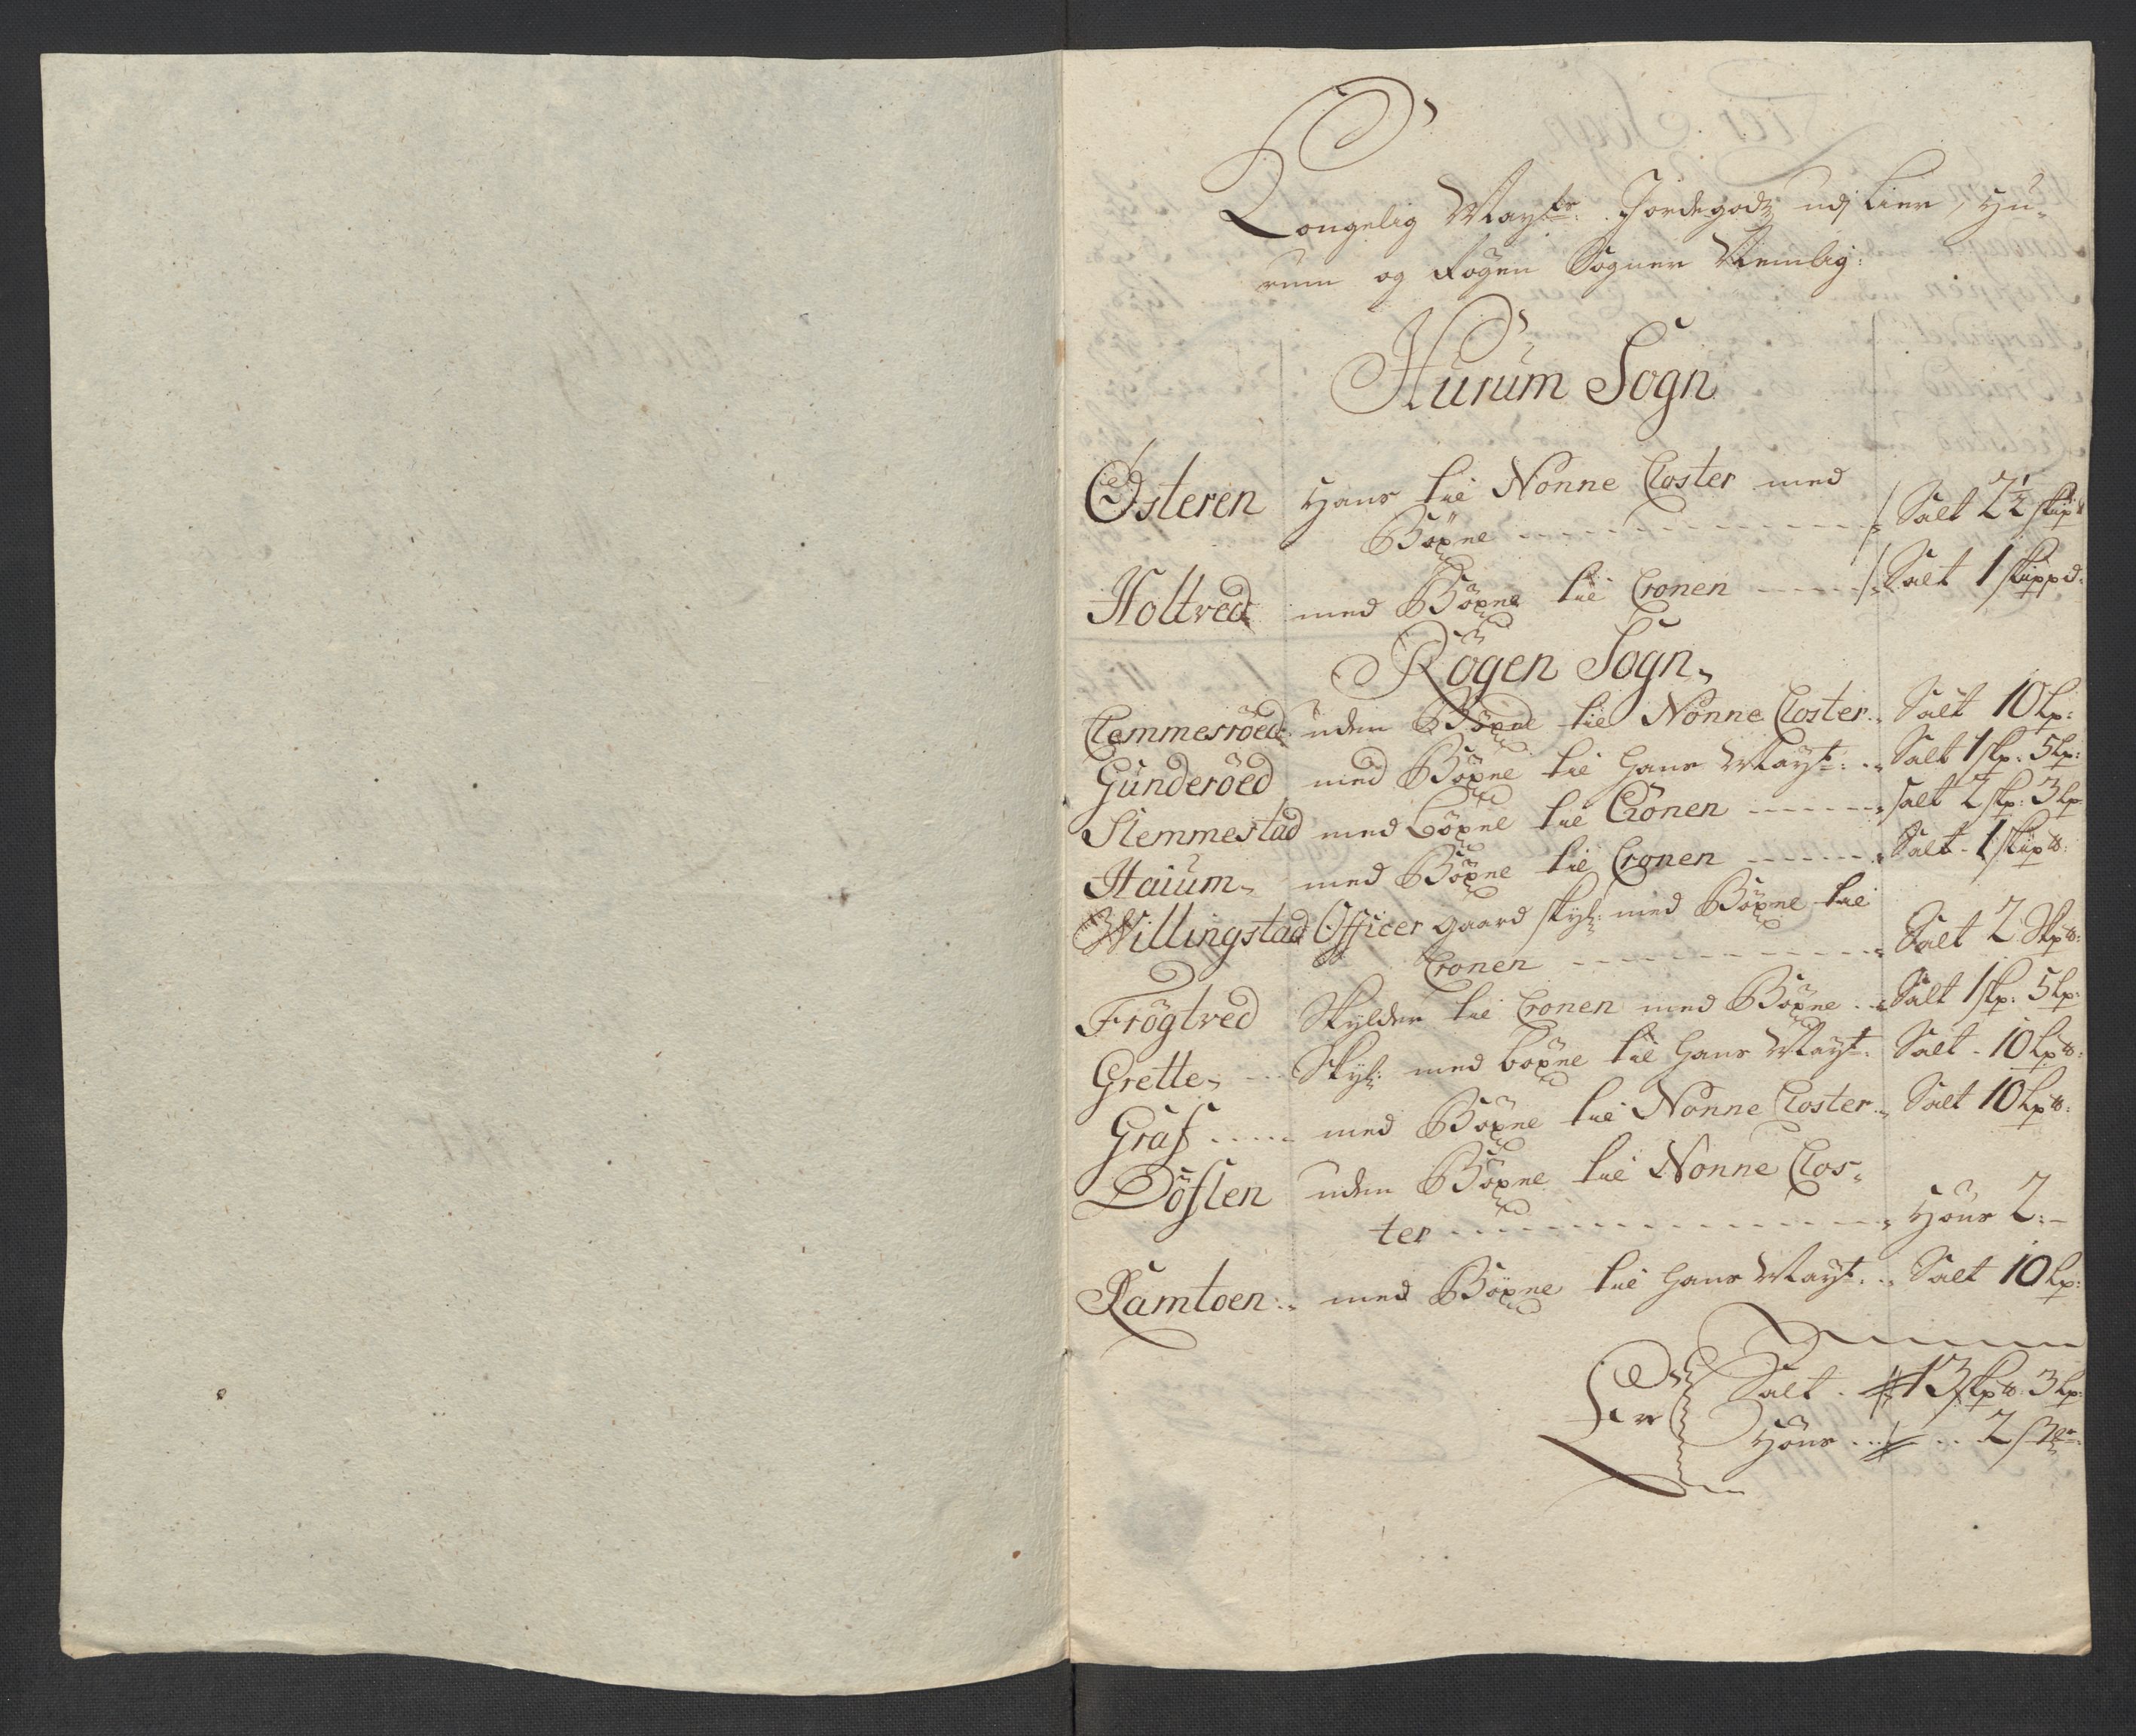 Kongelig Maÿts: Jordegodz udj Lier, Hu-
rum og Rögen Sogner Nemlig:
Hurum Sogn
Østeren Hans til Nonne Closter med
Böxne - - - Salt 2½ skip℔
Holtved med Böxne til Cronen - - - Salt 1 skippd:
Rögen Sogn
Clemmesröed uden Böxne til Nonne Closter Salt 10 Lp:
Gunderöed med Böxne til Hans Maÿt: Salt 1 skp: 5 Lp:
Slemmestad med Böxne til Cronen - - - Salt 2 skp: 3 Lp
Haium med Böxne til Cronen - - - Salt - 1 skip℔:
Willingstad Officer gaard skÿl: med Böxne til
Cronen - - - Salt 2 Skp℔:
Frögtved Skÿlder til Cronen med Böxne Salt 1 skp: 5 Lp:
Grette Skÿl: med böxne til Hans Maÿt: Salt - 10 Lp℔:
Graf - - - med Böxne til Nonne Closter Salt 10 Lp℔:
Döslen uden Böxne til Nonne Clos-
ter - - - Höns 2:-
Ramtoen med Böxne til Hans Maÿt: Salt 10 Lp:
Er Salt - 13 skp℔: 3 Lp:
Höns - - 2